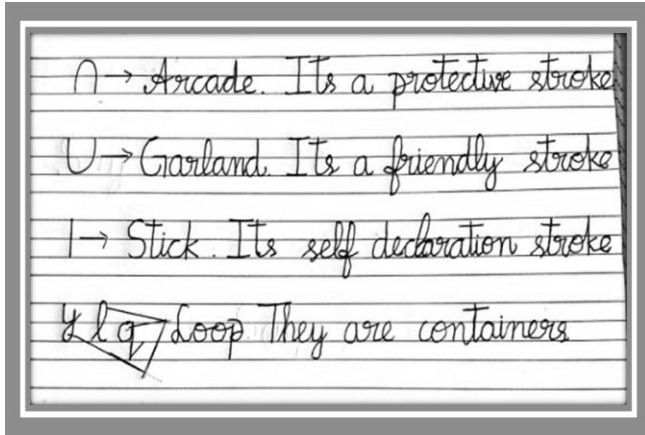 ∩→ Arcade. Its a protective stroke
U→ Garland. Its a friendly stroke
|→ Stick. Its self declaration stroke
y l q Loop They are containers